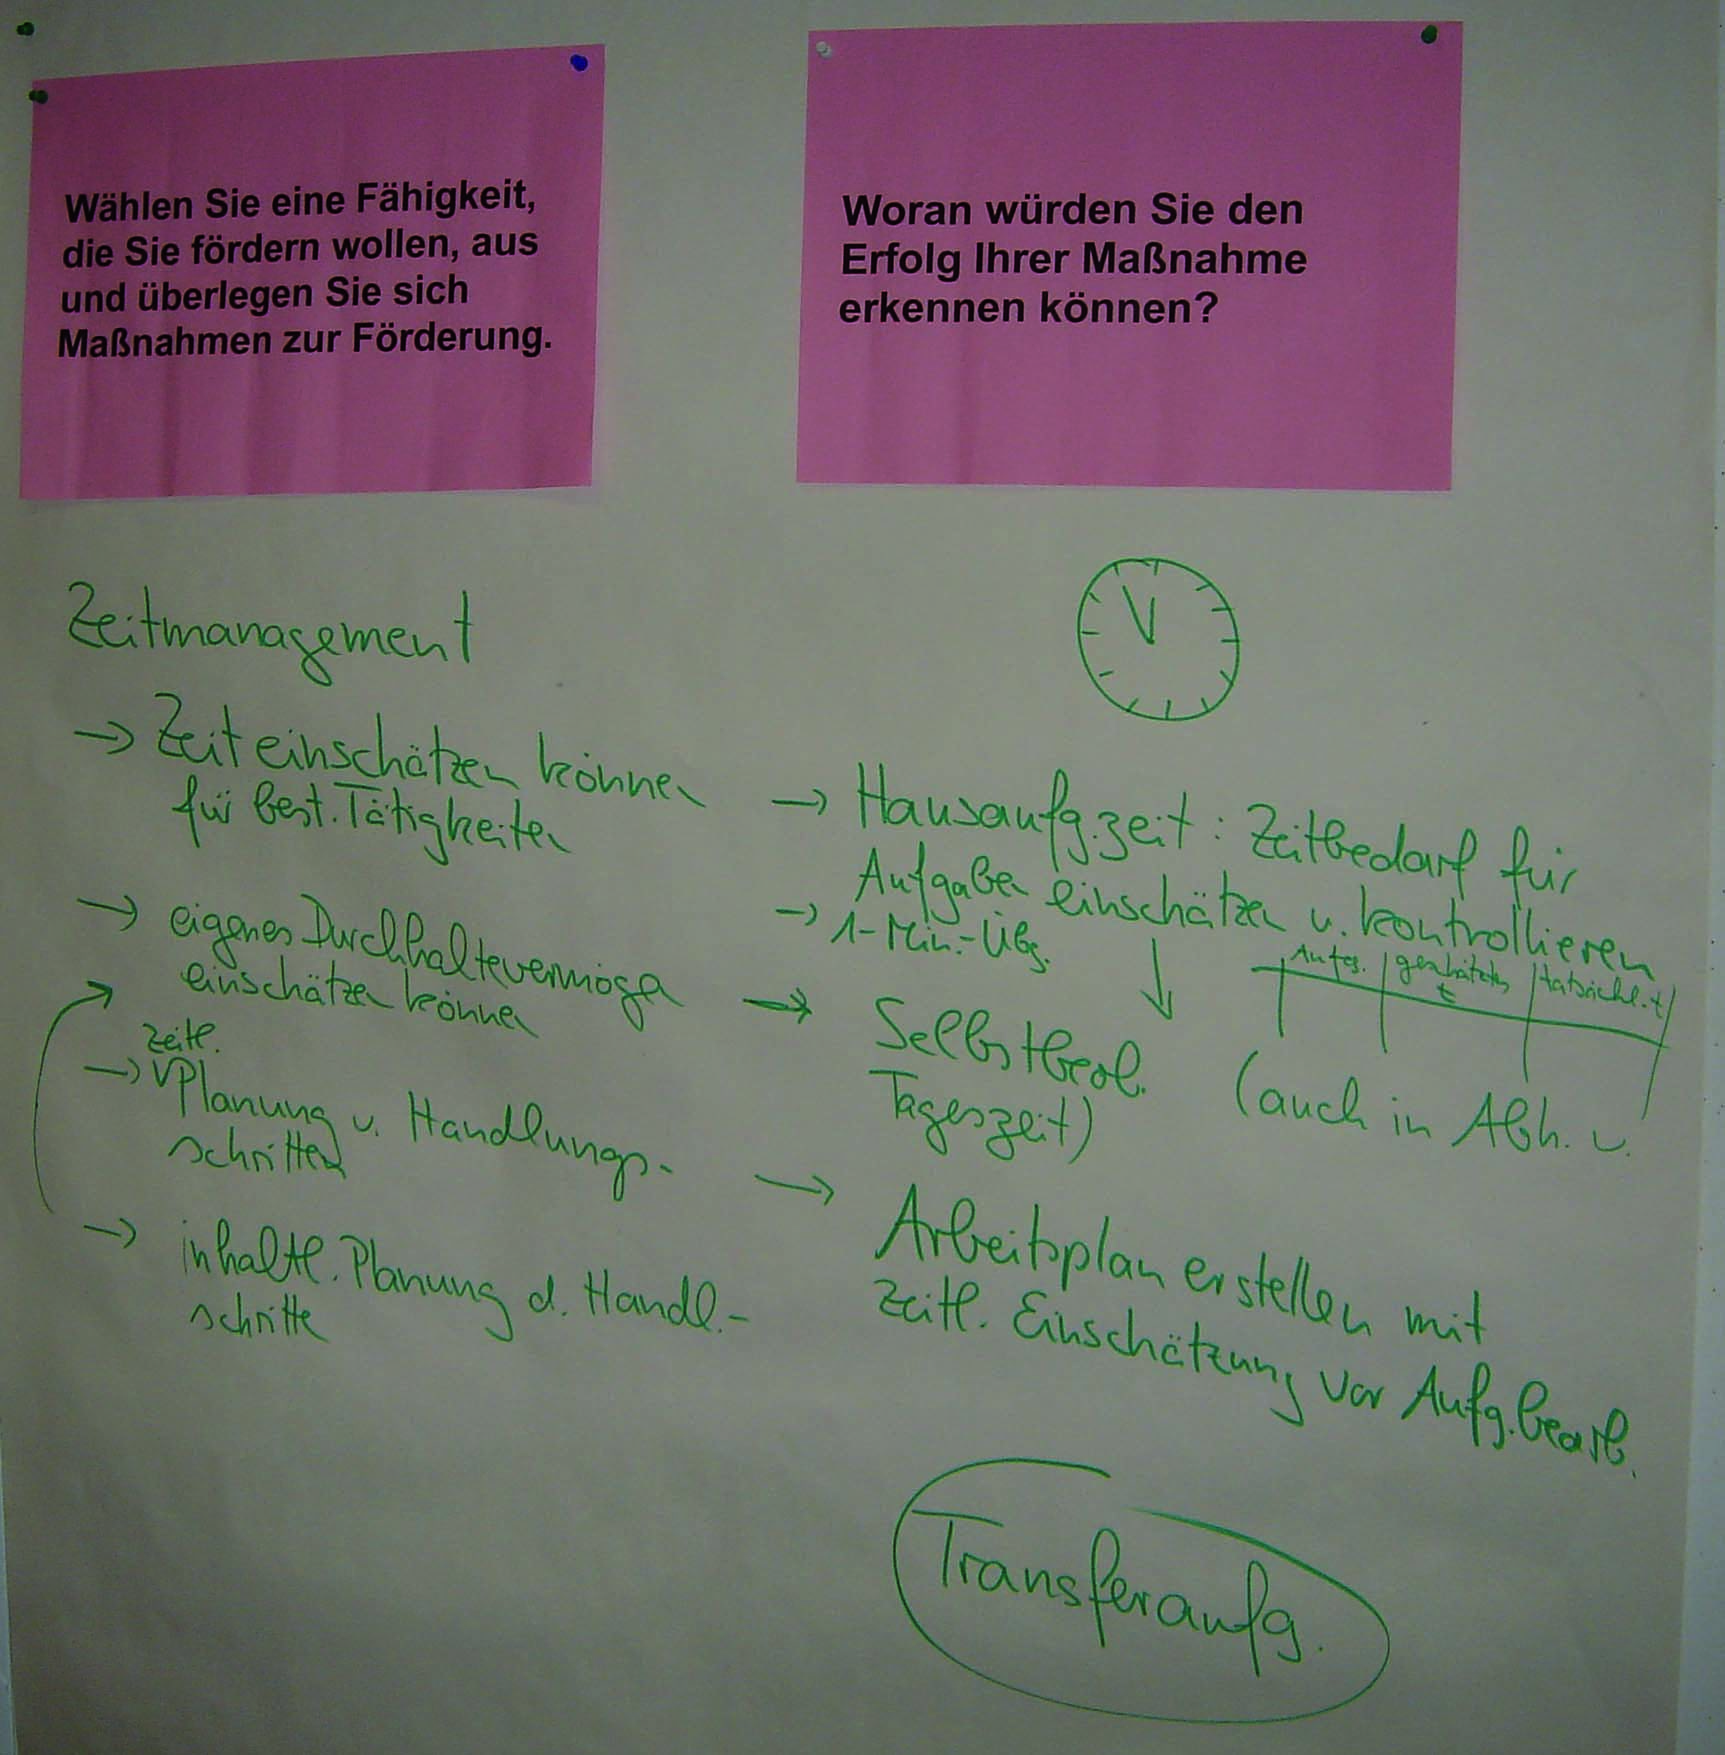 Wählen Sie eine Fähigkeit,
die Sie fördern wollen, aus
und überlegen Sie sich
Maßnahmen zur Förderung.
Woran würden Sie den
Erfolg Ihrer Maßnahme
erkennen können?
Zeitmanagement
→ Zeit einschätzen können
für best. Tätigkeiten
→ eigenes Durchhaltevermögen
einschätzen können
zeitl.
→ Planung v. Handlungs-
schritten
→ inhaltl. Planung d. Handl.-
schritte
→ Hausaufg.zeit: Zeitbedarf für
Aufgaben einschätzen u. kontrollieren
→ 1-Min.-Übg.
Aufg. geschätzte t tatsächl. t
→ Selbstbeob. (auch in Abh. v.
Tageszeit)
→ Arbeitsplan erstellen mit
zeitl. Einschätzung vor Aufg.bearb.
Transferaufg.